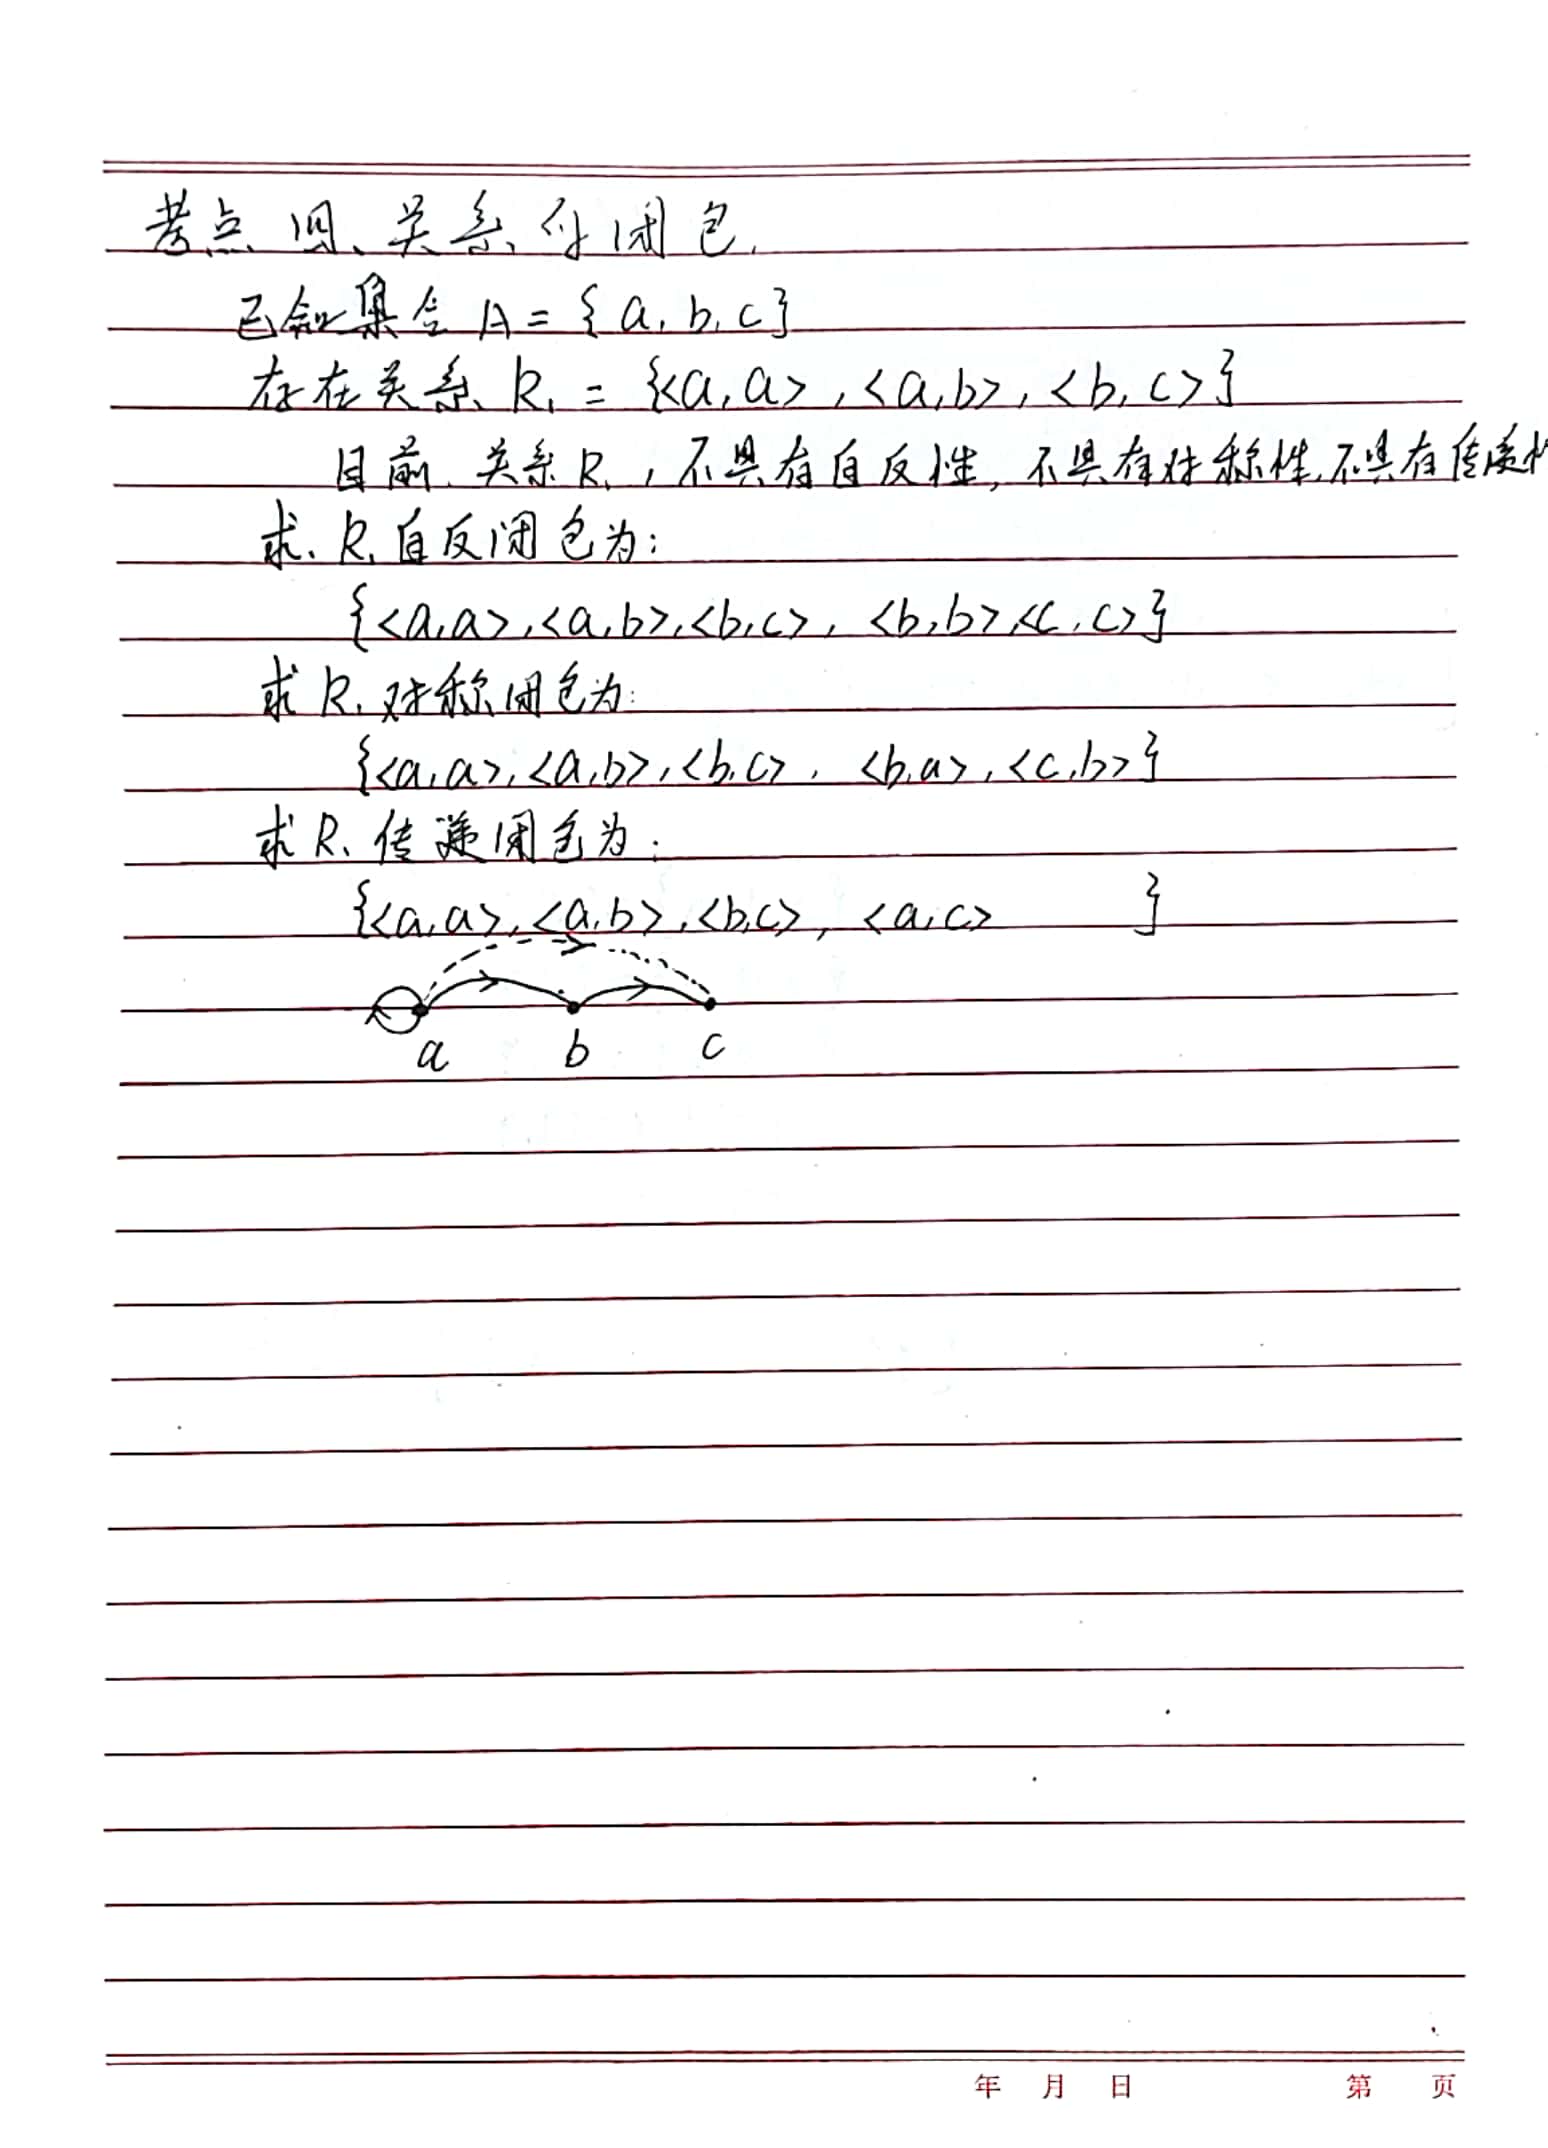 考点四、关系的闭包.
已知集合 A = {a, b, c}
存在关系 R₁ = {<a,a>, <a,b>, <b,c>}
目前、关系R₁, 不具有自反性, 不具有对称性, 不具有传递性
求、R₁自反闭包为:
{<a,a>,<a,b>,<b,c>, <b,b>,<c,c>}
求 R₁ 对称闭包为:
{<a,a>,<a,b>,<b,c>, <b,a>,<c,b>}
求 R₁ 传递闭包为:
{<a,a>,<a,b>,<b,c>, <a,c> }
a b c
年 月 日 第 页